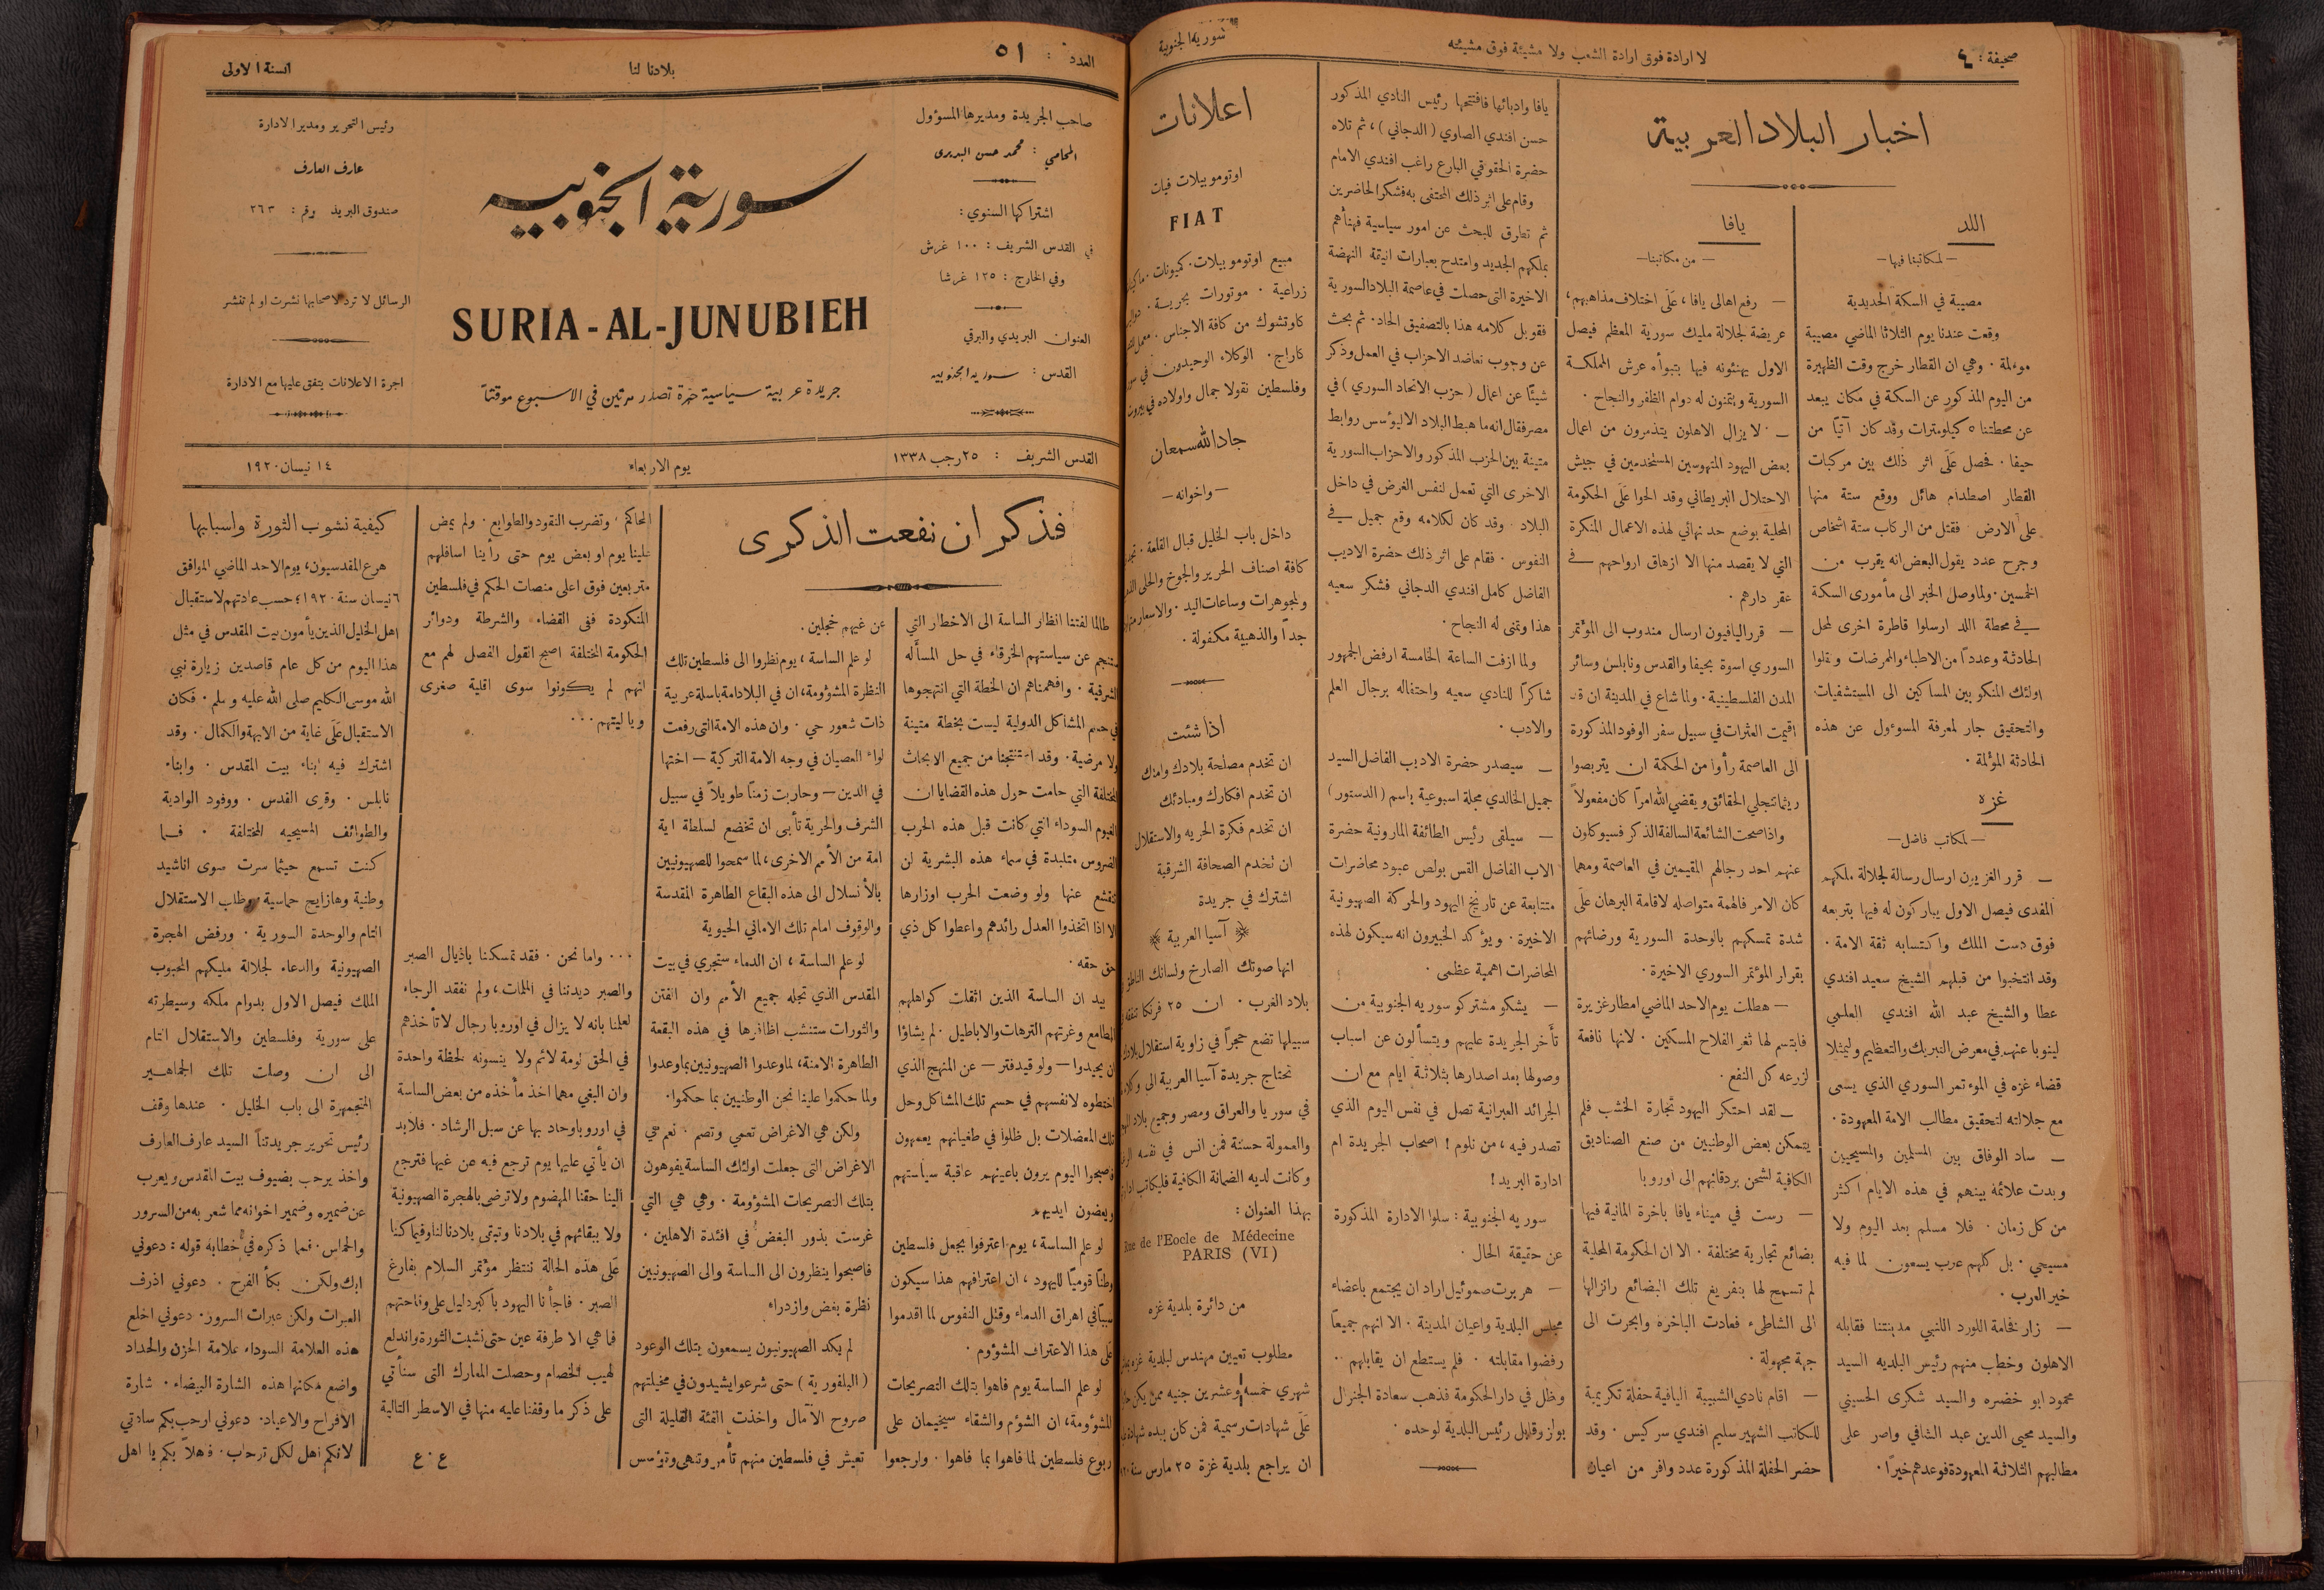 صحيفة : ٤
لا ارادة فوق ارادة الشعب ولا مشيئة فوق مشيئته
سورية الجنوبية
اخبار البلاد العربية
اللد
— لمكاتبنا فيها —
مصيبة في السكة الحديدية
وقعت عندنا يوم الثلاثا الماضي مصيبة
موءلمة ٠ وهي ان القطار خرج وقت الظهيرة
من اليوم المذكور عن السكة في مكان يبعد
عن محطتنا ٥ كيلومترات وقد كان آتياً من
حيفا ٠ فحصل عَلَى اثر ذلك بين مركبات
القطار اصطدام هائل ووقع ستة منها
على الارض ٠ فقتل من الركاب ستة اشخاص
وجرح عدد يقول البعض انه يقرب من
الخمسين ٠ ولما وصل الخبر الى مأموري السكة
في محطة اللد ارسلوا قاطرة اخرى لمحل
الحادثة وعدداً من الاطباء والممرضات ونقلوا
اولئك المنكوبين المساكين الى المستشفيات
والتحقيق جار لمعرفة المسوءول عن هذه
الحادثة المؤلمة ٠
غزه
— لمكاتب فاضل —
— قرر الغزيون ارسال رسالة لجلالة ملكهم
المفدى فيصل الاول يباركون له فيها بتربعه
فوق دست الملك واكتسابه ثقة الامة ٠
وقد انتخبوا من قبلهم الشيخ سعيد افندي
عطا والشيخ عبد الله افندي العلمي
لينوبا عنهم في معرض التبريك والتعظيم وليمثلا
قضاء غزه في الموءتمر السوري الذي يسعى
مع جلالته لتحقيق مطالب الامة المعهودة ٠
— ساد الوفاق بين المسلمين والمسيحيين
وبدت علائمه بينهم في هذه الايام اكثر
من كل زمان ٠ فلا مسلم بعد اليوم ولا
مسيحي ٠ بل كلهم عرب يسعون لما فيه
خير العرب ٠
— زار فخامة اللورد اللنبي مدينتنا فقابله
الاهلون وخطب منهم رئيس البلديه السيد
محمود ابو خضره والسيد شكري الحسيني
والسيد محيي الدين عبد الشافي واصر على
مطالبهم الثلاثة المعهودة فوعدهم خيراً ٠
يافا
— من مكاتبنا —
— رفع اهالي يافا ، عَلَى اختلاف مذاهبهم ،
عريضة لجلالة مليك سورية المعظم فيصل
الاول يهنئونه فيها بتبوأه عرش المملكة
السورية ويتمنون له دوام الظفر والنجاح ٠
— لا يزال الاهلون يتذمرون من اعمال
بعض اليهود المتهوسين المستخدمين في جيش
الاحتلال البريطاني وقد الحوا عَلَى الحكومة
المحلية بوضع حد نهائي لهذه الاعمال المنكرة
التي لا يقصد منها الا ازهاق ارواحهم في
عقر دارهم ٠
— قرر اليافيون ارسال مندوب الى المؤتمر
السوري اسوة بحيفا والقدس ونابلس وسائر
المدن الفلسطينية ٠ ولما شاع في المدينة ان قد
اقيمت العثرات في سبيل سفر الوفود المذكورة
الى العاصمة رأوا من الحكمة ان يتربصوا
ريثما تنجلي الحقائق ويقضي الله امراً كان مفعولاً
واذا صحت الشائعة السالفة الذكر فسيوكلون
عنهم احد رجالهم المقيمين في العاصمة ومهما
كان الامر فالهمة متواصله لاقامة البرهان عَلَى
شدة تمسكهم بالوحدة السورية ورضائهم
بقرار المؤتمر السوري الاخيرة ٠
— هطلت يوم الاحد الماضي امطار غزيرة
فابتسم لها ثغر الفلاح المسكين ٠ لانها نافعة
لزرعه كل النفع ٠
— لقد احتكر اليهود تجارة الخشب فلم
يتمكن بعض الوطنيين من صنع الصناديق
الكافية لشحن بردقائهم الى اوروبا
— رست في ميناء يافا باخرة المانية فيها
بضائع تجارية مختلفة ٠ الا ان الحكومة المحلية
لم تسمح لها بتفريغ تلك البضائع وانزالها
الى الشاطىء فعادت الباخرة وابحرت الى
جهة مجهولة ٠
— اقام نادي الشبيبة اليافية حفلة تكريمية
للكاتب الشهير سليم افندي سركيس ٠ وقد
حضر الحفلة المذكورة عدد وافر من اعيان
يافا وادبائها فافتتحها رئيس النادي المذكور
حسن افندي الصاوي ( الدجاني ) ، ثم تلاه
حضرة الحقوقي البارع راغب افندي الامام
وقام على اثر ذلك المحتفى به فشكر الحاضرين
ثم تطرق للبحث عن امور سياسية فهنأهم
بملكهم الجديد وامتدح بعبارات انيقة النهضة
الاخيرة التي حصلت في عاصمة البلاد السورية
فقوبل كلامه هذا بالتصفيق الحاد ٠ ثم بحث
عن وجوب تعاضد الاحزاب في العمل وذكر
شيئاً عن اعمال ( حزب الاتحاد السوري ) في
مصر فقال انه ما هبط البلاد الا ليؤسس روابط
متينة بين الحزب المذكور والاحزاب السورية
الاخرى التي تعمل لنفس الغرض في داخل
البلاد ٠ وقد كان لكلامه وقع جميل في
النفوس ٠ فقام على اثر ذلك حضرة الاديب
الفاضل كامل افندي الدجاني فشكر سعيه
هذا وتمنى له النجاح ٠
ولما ازفت الساعة الخامسة ارفض الجمهور
شاكراً للنادي سعيه واحتفاله برجال العلم
والادب ٠
— سيصدر حضرة الاديب الفاضل السيد
جميل الخالدي مجلة اسبوعية باسم ( الدستور )
— سيلقى رئيس الطائفة المارونية حضرة
الاب الفاضل القس بولص عبود محاضرات
متتابعة عن تاريخ اليهود والحركة الصهيونية
الاخيرة ٠ ويؤكد الخبيرون انه سيكون لهذه
المحاضرات اهمية عظمى ٠
— يشكو مشتركو سوريه الجنوبية من
تأخر الجريدة عليهم ويتسألون عن اسباب
وصولها بعد اصدارها بثلاثة ايام مع ان
الجرائد العبرانية تصل في نفس اليوم الذي
تصدر فيه ، من نلوم ! اصحاب الجريدة ام
ادارة البريد !
سوريه الجنوبية : سلوا الادارة المذكورة
عن حقيقة الحال ٠
— هربرت صموئيل اراد ان يجتمع باعضاء
مجلس البلدية واعيان المدينة ٠ الا انهم جميعاً
رفضوا مقابلته ٠ فلم يستطع ان يقابلهم ٠٠
وظل في دار الحكومة فذهب سعادة الجنرال
بولز وقابل رئيس البلدية لوحده ٠
اعلانات
اوتوموبيلات فيات
FIAT
مبيع اوتوموبيلات ٠ كميونات ٠
زراعية ٠ موتورات بحرية ٠
كاوتشوك من كافة الاجناس ٠
كاراج ٠ الوكلاء الوحيدون في
وفلسطين نقولا جمال واولاده في بيروت
جاد الله سمعان
— واخوانه —
داخل باب الخليل قبال القلعة ٠
كافة اصناف الحرير والجوخ والحلى
والمجوهرات وساعات اليد ٠ والاسعار
جداً والذهبية مكفولة ٠
اذا شئت
ان تخدم مصلحة بلادك وامتك
ان تخدم افكارك ومبادئك
ان تخدم فكرة الحريه والاستقلال
ان تخدم الصحافة الشرقية
اشترك في جريدة
﴿ آسيا العربية ﴾
انها صوتك الصارخ ولسانك الناطق
بلاد الغرب ٠ ان ٢٥ فرنكا
سبيلها تضع حجراً في زاوية استقلال
تحتاج جريدة آسيا العربية الى
في سوريا والعراق ومصر وجميع بلاد
والعمولة حسنة فمن انس في نفسه
وكانت لديه الضمانة الكافية فليكاتب
بهذا العنوان :
Rue de l'Eocle de Médecine
PARIS (VI)
من دائرة بلدية غزه
مطلوب تعيين مهندس لبلدية غزه
شهري خمسه وعشرين جنيه ممن يكن
عَلَى شهادات رسمية فمن كان بيده
ان يراجع بلدية غزة ٢٥ مارس سنة
العدد : ٥١
بلادنا لنا
السنة الاولى
صاحب الجريدة ومديرها المسؤول
المحامي : محمد حسن البديري
اشتراكها السنوي :
في القدس الشريف : ١٠٠ غرش
وفي الخارج : ١٢٥ غرشا
العنوان البريدي والبرقي
القدس : سوريه الجنوبيه
سورية الجنوبيه
SURIA-AL-JUNUBIEH
جريدة عربية سياسية حرة تصدر مرتين في الاسبوع موقتتا
رئيس التحرير ومدير الادارة
عارف العارف
صندوق البريد رقم : ٢٦٣
الرسائل لا ترد لاصحابها نشرت او لم تنشر
اجرة الاعلانات يتفق عليها مع الادارة
القدس الشريف : ٢٥ رجب ١٣٣٨
يوم الاربعاء
١٤ نيسان ١٩٢٠
فذكر ان نفعت الذكرى
طالما لفتنا انظار الساسة الى الاخطار التي
ستنجم عن سياستهم الخرقاء في حل المسأله
الشرقية ٠ وافهمناهم ان الخطة التي انتهجوها
في حسم المشاكل الدولية ليست بخطة متينة
ولا مرضية ٠ وقد استنتجنا من جميع الابحاث
المختلفة التي حامت حول هذه القضايا ان
الغيوم السوداء التي كانت قبل هذه الحرب
الضروس متلبدة في سماء هذه البشرية لن
تنقشع عنها ولو وضعت الحرب اوزارها
الا اذا اتخذوا العدل رائدهم واعطوا كل ذي
حق حقه ٠
بيد ان الساسة الذين اثقلت كواهلهم
المطامع وغرتهم الترهات والاباطيل ٠ لم يشاؤا
ان يحيدوا — ولو قيد فتر — عن المنهج الذي
اختطوه لانفسهم في حسم تلك المشاكل وحل
تلك المعضلات بل ظلوا في طغيانهم يعمهون
فاصبحوا اليوم يرون باعينهم عاقبة سياستهم
ويعضون ايديهم
لو علم الساسة ، يوم اعترفوا بجعل فلسطين
وطناً قومياً لليهود ، ان اعترافهم هذا سيكون
سبباً في اهراق الدماء وقتل النفوس لما اقدموا
على هذا الاعتراف المشؤوم ٠
لو علم الساسة يوم فاهوا بتلك التصريحات
المشؤومة ، ان الشؤم والشقاء سيخيمان على
ربوع فلسطين لما فاهوا بما فاهوا ٠ وارجعوا
عن غيهم خجلين ٠
لو علم الساسة ، يوم نظروا الى فلسطين تلك
النظرة المشؤومة ، ان في البلاد امة باسلة عربية
ذات شعور حي ٠ وان هذه الامة التي رفعت
لواء العصيان في وجه الامة التركية — اختها
في الدين — وحاربت زمناً طويلاً في سبيل
الشرف والحرية تأبى ان تخضع لسلطة اية
امة من الأمم الاخرى ، لما سمحوا للصهيونيين
بالأنسلال الى هذه البقاع الطاهرة المقدسة
والوقوف امام تلك الاماني الحيوية
لو علم الساسة ، ان الدماء ستجري في بيت
المقدس الذي تجله جميع الأمم وان الفتن
والثورات ستنشب اظافرها في هذه البقعة
الطاهرة الامنة ، لما وعدوا الصهيونيين بما وعدوا
ولما حكموا علينا نحن الوطنيين بما حكموا ٠
ولكن هي الاغراض تعمي وتصم ٠ نعم هي
الاغراض التي جعلت اولئك الساسة يفوهون
بتلك التصريحات المشؤومة ٠ وهي هي التي
غرست بذور البغض في افئدة الاهلين ٠
فاصبحوا ينظرون الى الساسة والى الصهيونيين
نظرة بغض وازدراء
لم يكد الصهيونيون يسمعون بتلك الوعود
( البلفورية ) حتى شرعوا يشيدون في مخيلتهم
صروح الآمال واخذت الفئة القليلة التي
تعيش في فلسطين منهم تأمر وتنهى وتؤسس
المحاكم ٠ وتضرب النقود والطوابع ٠ ولم يمض
علينا يوم او بعض يوم حتى رأينا اسافلهم
متربعين فوق اعلى منصات الحكم في فلسطين
المنكودة ففى القضاء والشرطة ودوائر
الحكومة المختلفة اصبح القول الفصل لهم مع
انهم لم يكونوا سوى اقلية صغرى
ويا ليتهم ٠٠٠
٠٠٠ واما نحن ٠ فقد تمسكنا باذيال الصبر
والصبر ديدننا في الملمات ، ولم نفقد الرجاء
لعلمنا بانه لا يزال في اوروبا رجال لا تأخذهم
في الحق لومة لائم ولا ينسونه لحظة واحدة
وان البغي مهما اخذ مأخذه من بعض الساسة
في اوروبا وحاد بها عن سبل الرشاد ٠ فلابد
ان يأتي عليها يوم ترجع فيه عن غيها فترجع
الينا حقنا المهضوم ولا ترضى بالهجرة الصهيونية
ولا ببقائهم في بلادنا وتبقى بلادنا لنا وفيما كنا
عَلَى هذه الحالة ننتظر مؤتمر السلام بفارغ
الصبر ٠ فاجأنا اليهود بأكبر دليل على وقاحتهم
فما هي الا طرفة عين حتى نشبت الثورة واندلع
لهيب الخصام وحصلت المعارك التي سنأتي
على ذكر ما وقفنا عليه منها في الاسطر التالية
ع ٠ ع
كيفية نشوب الثورة واسبابها
هرع المقدسيون ، يوم الاحد الماضي الموافق
٦ نيسان سنة ١٩٢٠ ، حسب عادتهم لاستقبال
اهل الخليل الذين يأمون بيت المقدس في مثل
هذا اليوم من كل عام قاصدين زيارة نبي
الله موسى الكليم صلى الله عليه وسلم ٠ فكان
الاستقبال عَلَى غاية من الابهة والكمال ٠ وقد
اشترك فيه ابناء بيت المقدس ٠ وابناء
نابلس ٠ وقرى القدس ٠ ووفود الوادية
والطوائف المسيحيه المختلفة ٠ فما
كنت تسمع حيثما سرت سوى اناشيد
وطنية وهازايج حماسية وطلب الاستقلال
التام والوحدة السورية ٠ ورفض الهجرة
الصهيونية والدعاء لجلالة مليكهم المحبوب
الملك فيصل الاول بدوام ملكه وسيطرته
على سورية وفلسطين والاستقلال التام
الى ان وصلت تلك الجماهير
المتجمهرة الى باب الخليل ٠ عندها وقف
رئيس تحرير جريدتنا السيد عارف العارف
واخذ يرحب بضيوف بيت المقدس ويعرب
عن ضميره وضمير اخوانه مما شعر به من السرور
والحماس ٠ فمما ذكره في خطابه قوله : دعوني
ابك ولكن بكأ الفرح ٠ دعوني اذرف
العبرات ولكن عبرات السرور ٠ دعوني اخلع
هذه العلامة السوداء علامة الحزن والحداد
واضع مكانها هذه الشارة البيضاء ٠ شارة
الافراح والاعياد ٠ دعوني ارحب بكم سادتي
لانكم اهل لكل ترحاب ٠ فهلاً بكم يا اهل